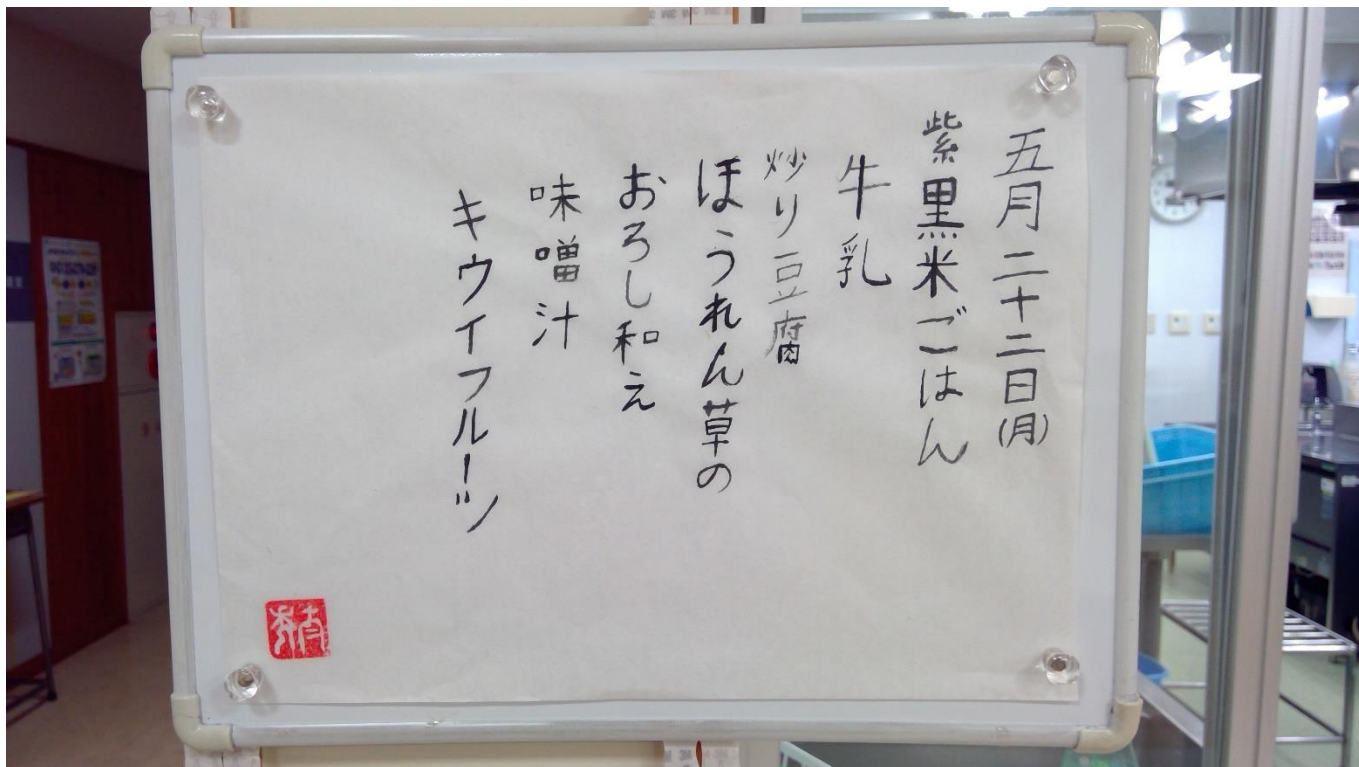 五月二十二日(月)
紫黒米ごはん
牛乳
炒り豆腐
ほうれん草の
おろし和え
味噌汁
キウイフルーツ